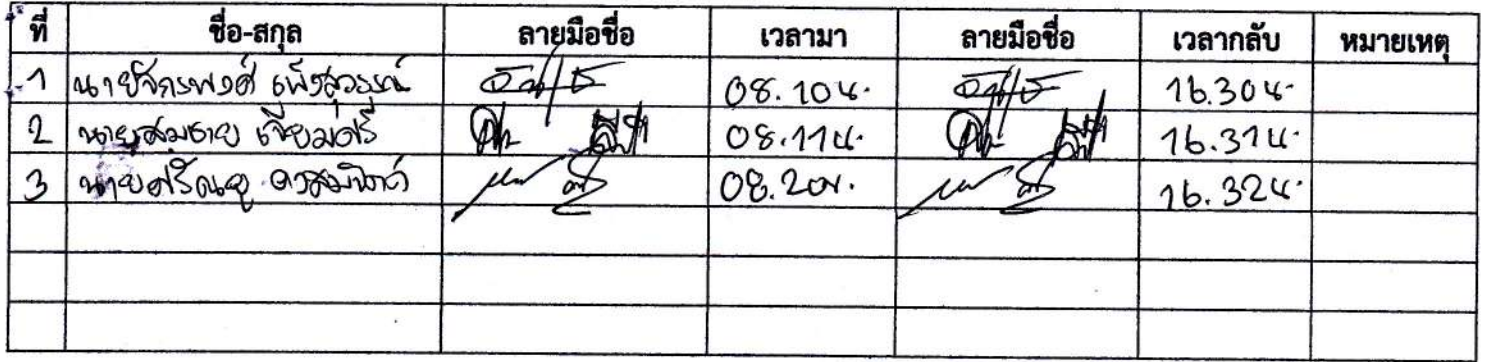 ที่ ชื่อ-สกุล ลายมือชื่อ เวลามา ลายมือชื่อ เวลากลับ หมายเหตุ
1 นายจักรพงศ์ เพ็งสุวรรณ์ 08.10น. 16.30น.
2 นายสมชาย เจียมศรี 08.11น. 16.31น.
3 นายศรัณยู 08.20น. 16.32น.